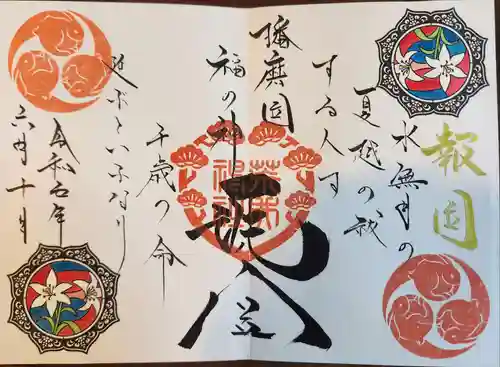 報国
水無月の
夏越の祓
する人は
播磨国
福の神
千歳の命
延ぶといふなり
令和七年
六月十日